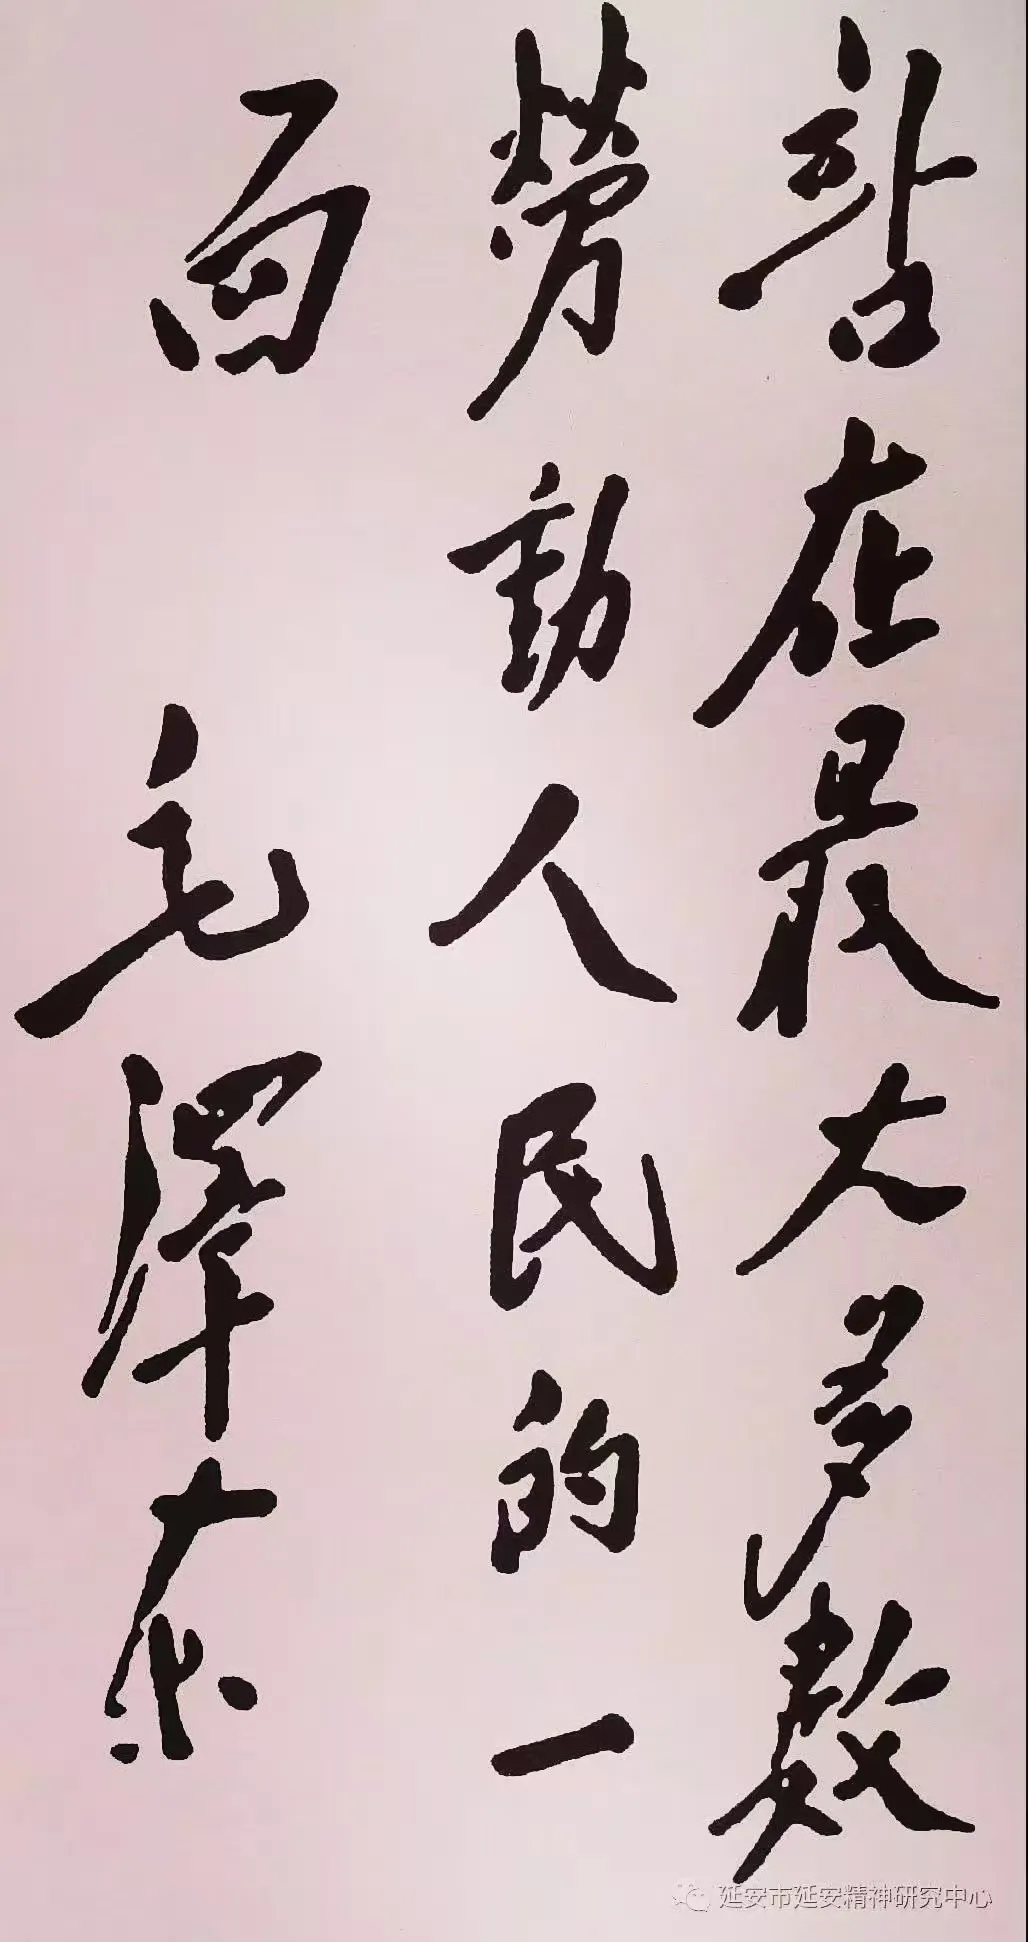 站在最大多數
勞動人民的一
面
毛澤东
延安市延安精神研究中心